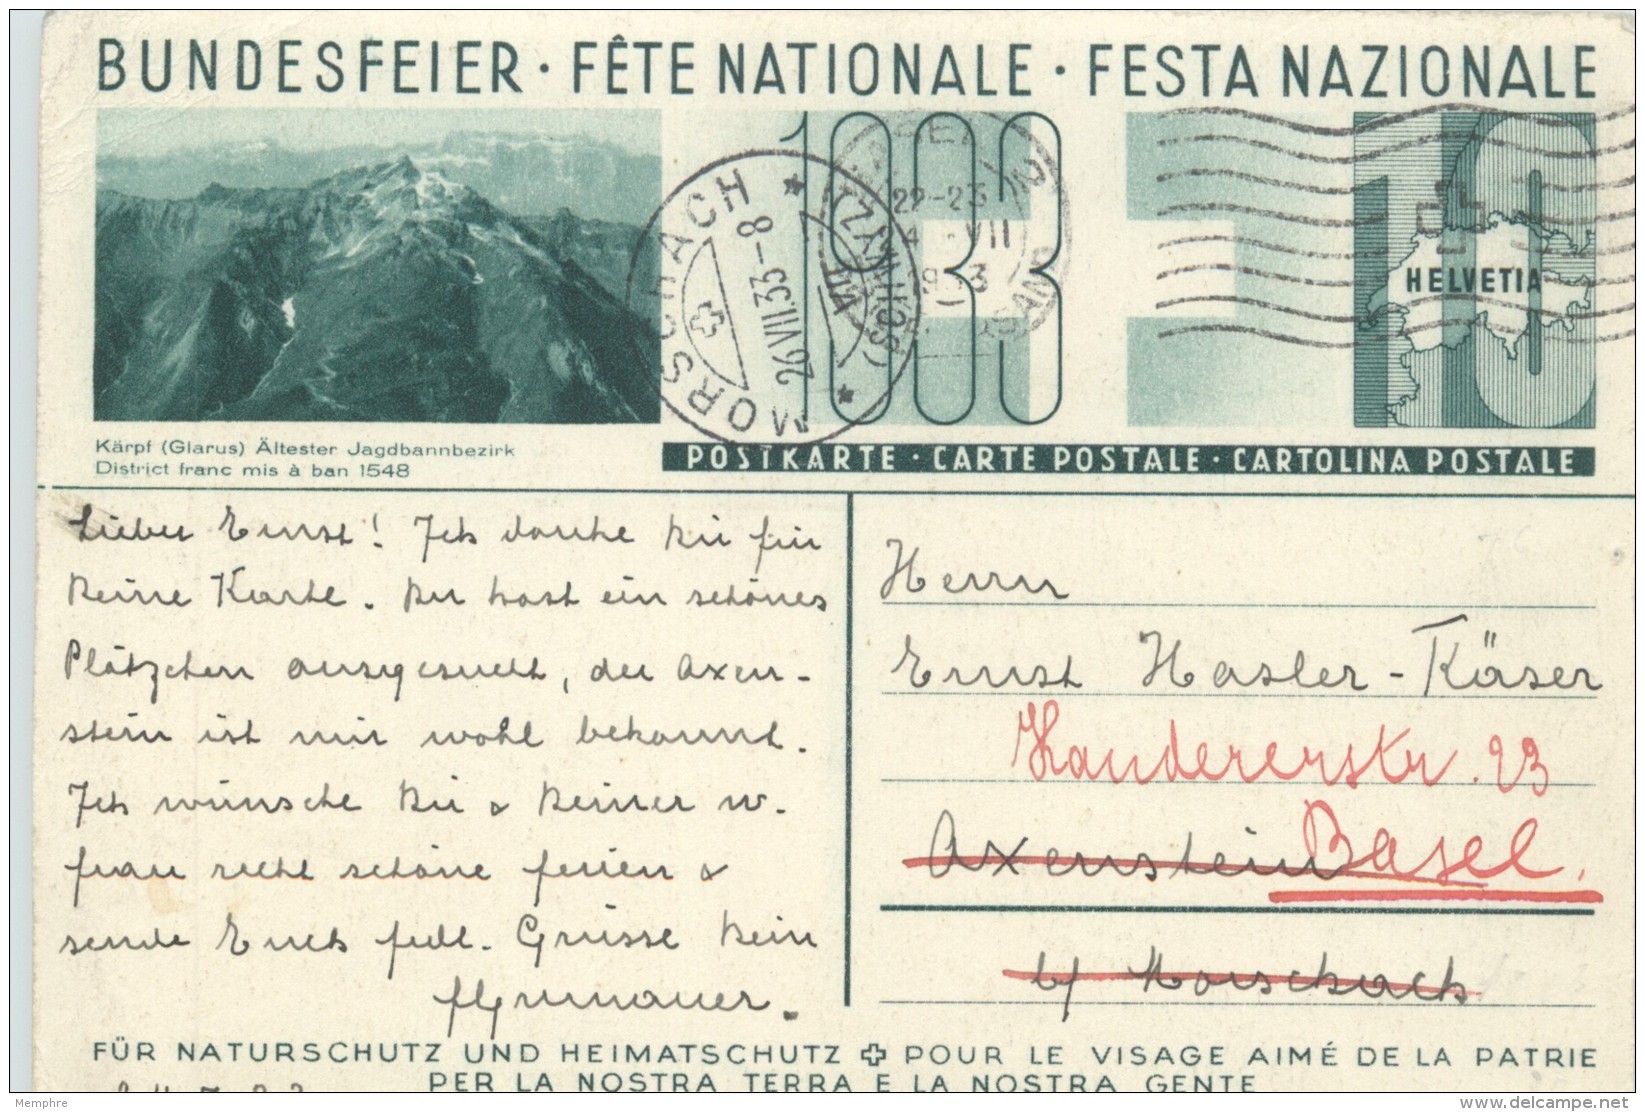 BUNDESFEIER · FÊTE NATIONALE · FESTA NAZIONALE
1933
10
HELVETIA
MORSCHACH
(SCHWYZ)
26.VII.33-8
VIII
22-23
VII
Kärpf (Glarus) Ältester Jagdbannbezirk
District franc mis à ban 1548
POSTKARTE · CARTE POSTALE · CARTOLINA POSTALE
Lieber Ernst! Ich danke Dir für
Deine Karte. Du hast ein schönes
Plätzchen ausgesucht, der Axen-
stein ist mir wohl bekannt.
Ich wünsche Dir & Deiner w.
Frau recht schöne Ferien &
sende Euch frdl. Grüsse Dein
Herrn
Ernst Hasler-Käser
23
Axenstein Basel.
b/ Morschach
FÜR NATURSCHUTZ UND HEIMATSCHUTZ ✚ POUR LE VISAGE AIMÉ DE LA PATRIE
PER LA NOSTRA TERRA E LA NOSTRA GENTE
Memphre
www.delcampe.net